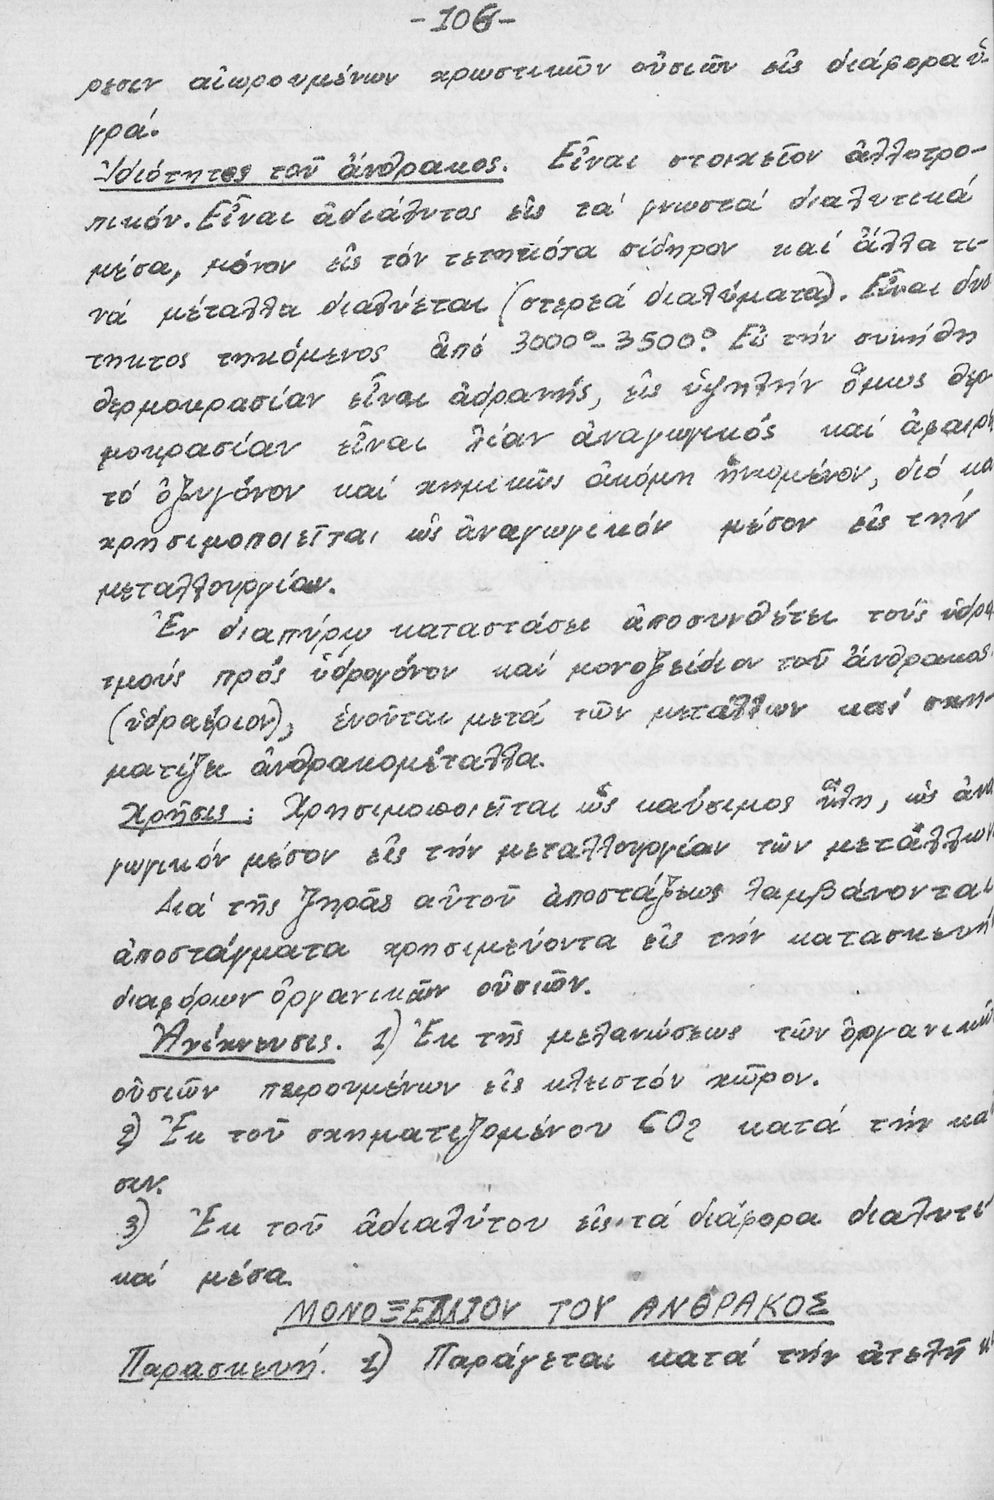 -106-
ρεσιν αἰωρουμένων χρωστικῶν οὐσιῶν εἰς διάφορα ὑ-
γρά.
Ἰδιότητες τοῦ ἄνθρακος. Εἶναι στοιχεῖον ἀλλοτρο-
πικόν. Εἶναι ἀδιάλυτος εἰς τά γνωστά διαλυτικά
μέσα, μόνον εἰς τόν τετηκότα σίδηρον καί ἄλλα τι-
νά μέταλλα διαλύεται (στερεά διαλύματα). Εἶναι δύσ
τηκτος τηκόμενος ἀπό 3000°-3500°. Εἰς τήν συνήθη
θερμοκρασίαν εἶναι ἀδρανής, εἰς ὑψηλήν ὅμως θερ
μοκρασίαν εἶναι λίαν ἀναγωγικός καί ἀφαιρε
τό ὀξυγόνον καί χημικῶς ἀκόμη ἡνωμένον, διό κα
χρησιμοποιεῖται ὡς ἀναγωγικόν μέσον εἰς τήν
μεταλλουργίαν.
Ἐν διαπύρω καταστάσει ἀποσυνθέτει τούς ὑδρα
τμούς πρός ὑδρογόνον καί μονοξείδιον τοῦ ἄνθρακος
(ὑδραέριον), ἑνοῦται μετά τῶν μετάλλων καί σχη-
ματίζει ἀνθρακομέταλλα.
Χρῆσις: Χρησιμοποιεῖται ὡς καύσιμος ὕλη, ὡς ἀνα
γωγικόν μέσον εἰς τήν μεταλλουργίαν τῶν μετάλλων
Διά τῆς ξηρᾶς αὐτοῦ ἀποστάξεως λαμβάνονται
ἀποστάγματα χρησιμεύοντα εἰς τήν κατασκευή
διαφόρων ὀργανικῶν οὐσιῶν.
Ἀνίχνευσις. 1) Ἐκ τῆς μελανώσεως τῶν ὀργανικῶ
οὐσιῶν πειρουμένων εἰς κλειστόν χῶρον.
2) Ἐκ τοῦ σχηματιζομένου CO2 κατά τήν κα
σιν.
3) Ἐκ τοῦ ἀδιαλύτου εἰς τά διάφορα διαλυτι
κά μέσα.
ΜΟΝΟΞΕΙΔΙΟΝ ΤΟΥ ΑΝΘΡΑΚΟΣ
Παρασκευή. 1) Παράγεται κατά τήν ἀτελῆ κ